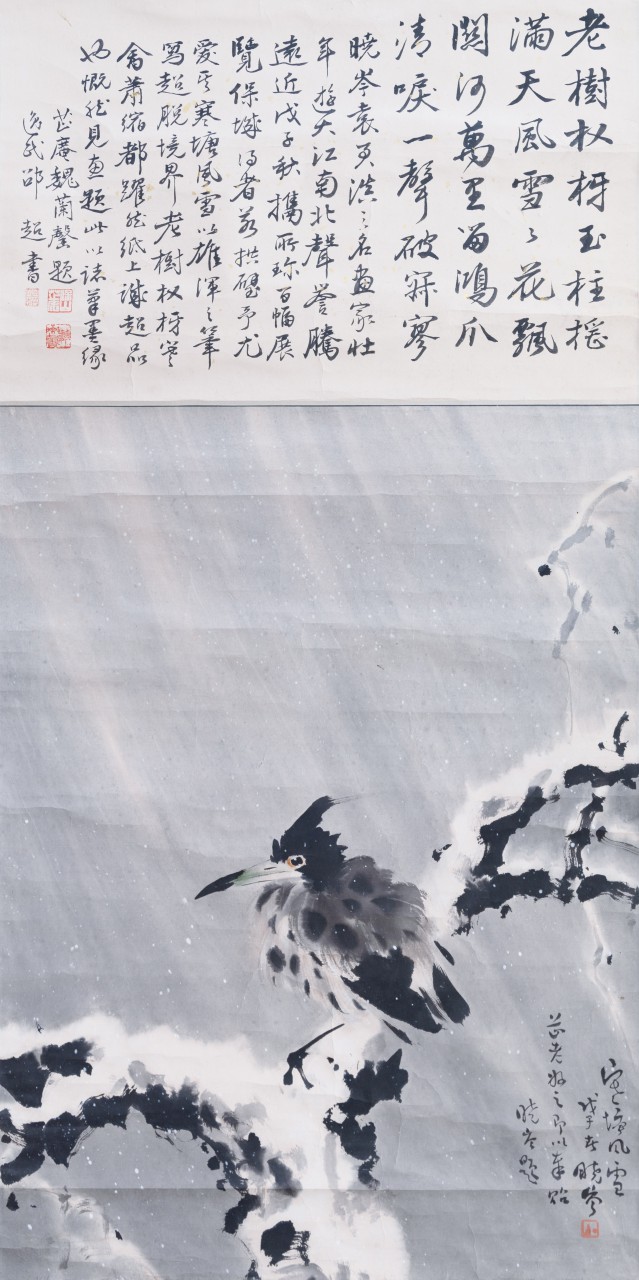 老樹杈枒玉柱搖
滿天風雪雪花飄
關河萬里留鴻爪
清唳一聲破寂寥
曉岑袁君洪洪名畫家壯
年游大江南北聲譽騰
遠近戊子秋攜所珍百幅展
覽保城得者若拱璧予尤
愛其寒塘風雪以雄渾之筆
寫超脫境界老樹杈枒寒
禽蕭縮都躍然紙上誠超品
也慨然見惠題此以誌翰墨緣
芷庵魏蘭馨題
逸民邵超書
寒塘風雪
戊子冬曉岑
芷老好之即以奉貽
曉岑題